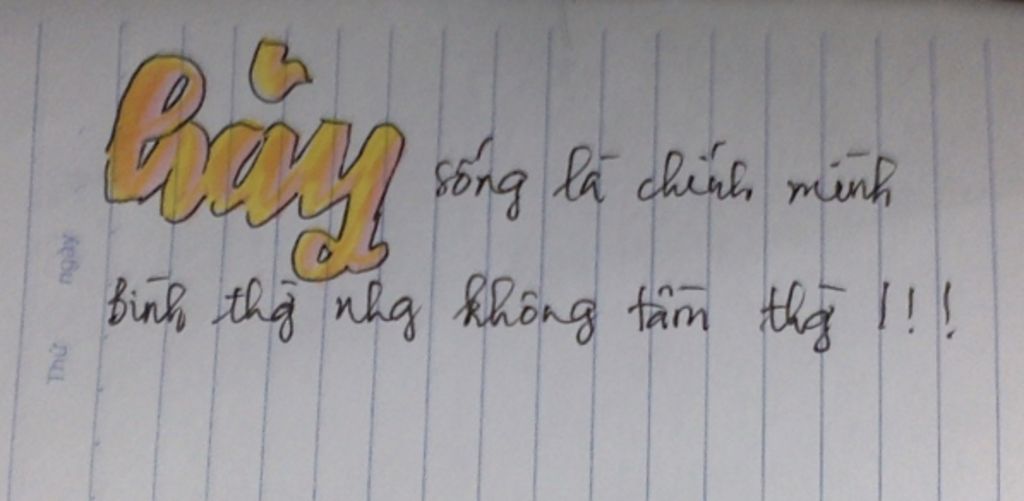 hãy sống là chính mình
Bình thg̀ nhg không tầm thg̀ !!!
Thứ ngày